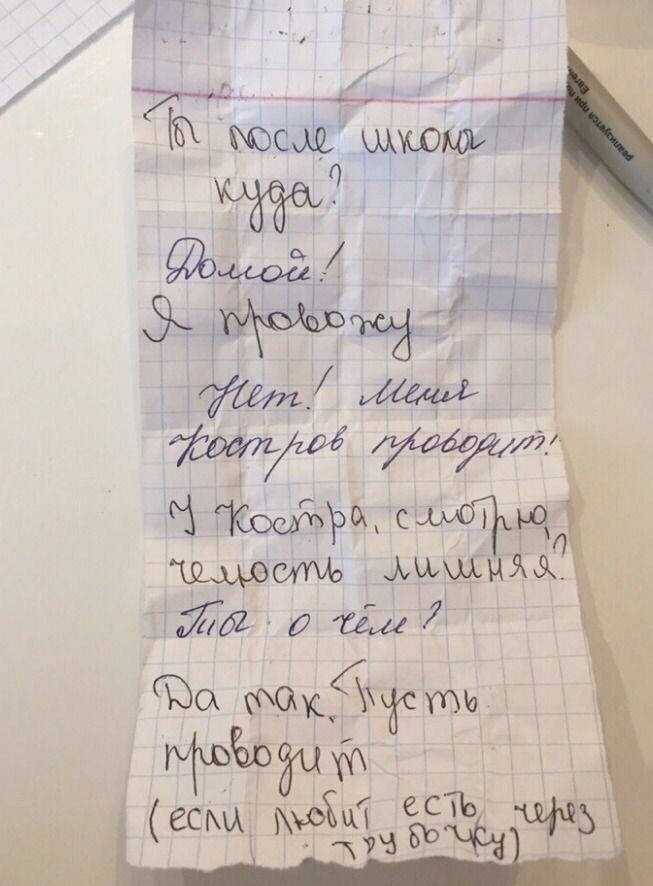 Ты после школы
куда?
Домой!
Я провожу
Нет! Меня
Костров проводит!
У Костра, смотрю,
челюсть лишняя?
Ты о чём?
Да так. Пусть
проводит
(если любит есть через
трубочку)
реализуется при по
Евген